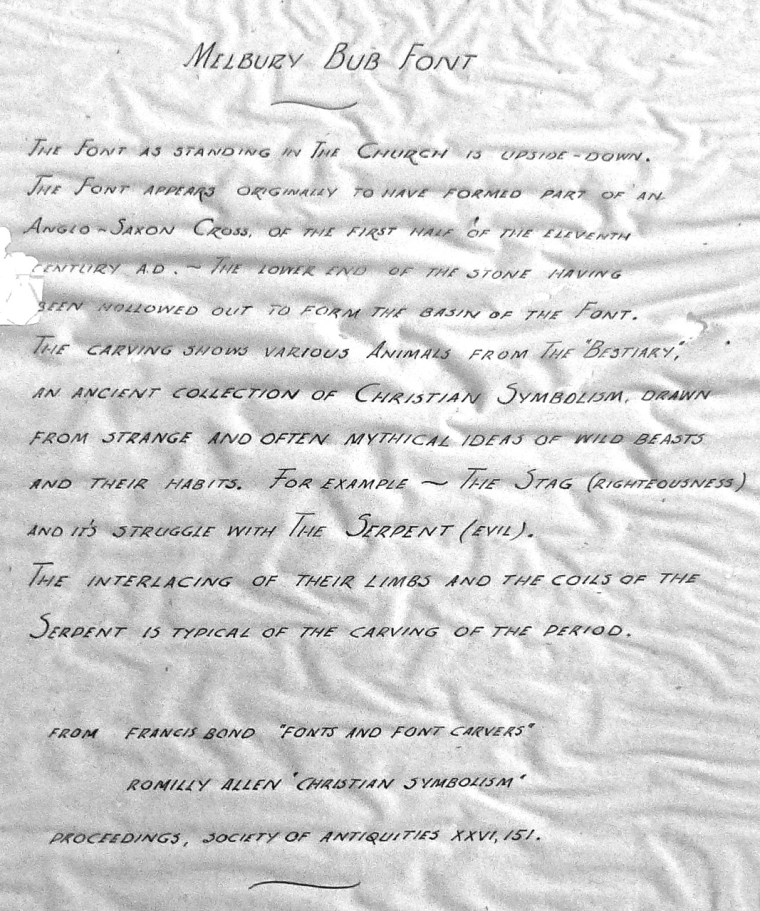 Melbury Bub Font
The Font as standing in The Church is upside-down.
The Font appears originally to have formed part of an
Anglo-Saxon Cross, of the first half of the eleventh
century A.D. ~ The lower end of the stone having
been hollowed out to form the basin of the Font.
The carving shows various Animals from The "Bestiary",
an ancient collection of Christian Symbolism, drawn
from strange and often mythical ideas of wild beasts
and their habits. For example ~ The Stag (righteousness)
and it's struggle with The Serpent (evil).
The interlacing of their limbs and the coils of the
Serpent is typical of the carving of the period.
from Francis Bond "Fonts and Font Carvers"
Romilly Allen "Christian Symbolism"
Proceedings, Society of Antiquities XXVI, 151.